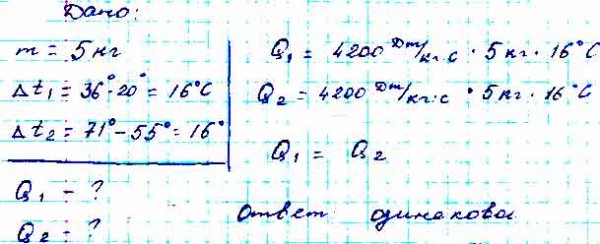 Дано:
m = 5 кг
Δt₁ = 36°-20° = 16°C
Δt₂ = 71°-55° = 16°
Q₁ - ?
Q₂ - ?
Q₁ = 4200 Дж/кг·с · 5 кг · 16°C
Q₂ = 4200 Дж/кг·с · 5 кг · 16°C
Q₁ = Q₂
ответ одинакова